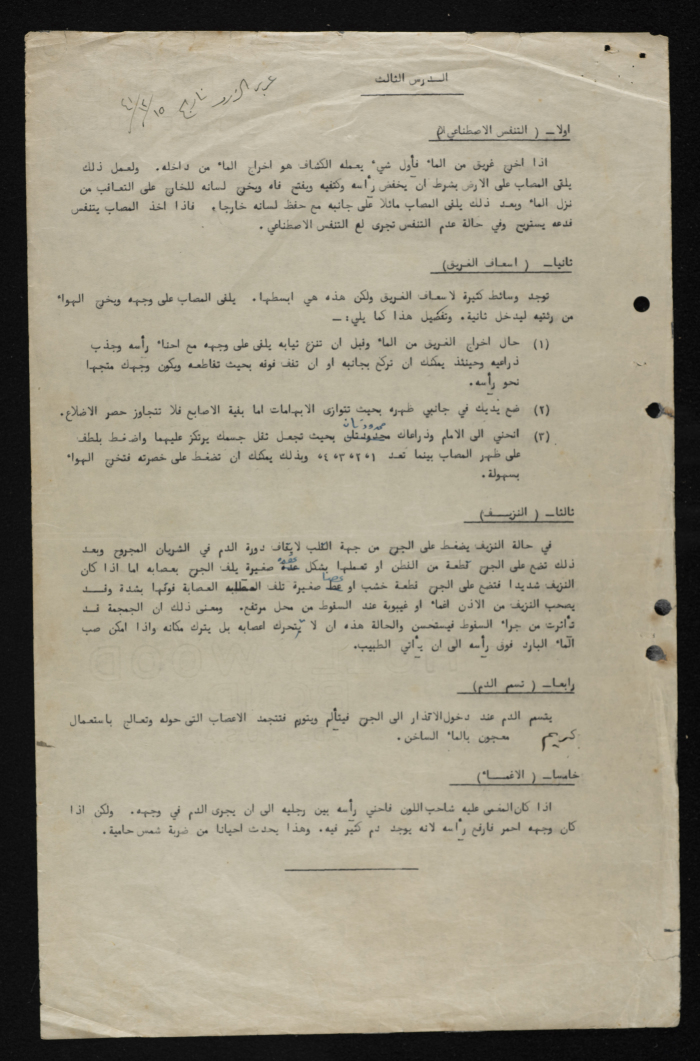 الـدرس الثالث
تاريخ ١٥/٢/٤١
اولاـ ( التنفس الاصطناعي )
اذا اخرج غريق من الماء فأول شيء يعمله الكشاف هو اخراج الماء من داخله. ولعمل ذلك
يلقى المصاب على الارض بشرط ان يخفض رأسه وكتفيه ويفتح فاه ويخرج لسانه للخارج على التعاقب من
نزل الماء وبعد ذلك يلقى المصاب مائلا على جانبه مع حفظ لسانه خارجا. فاذا اخذ المصاب يتنفس
فدعه يستريح وفي حالة عدم التنفس تجرى له التنفس الاصطناعي.
ثانياـ ( اسعاف الغريق)
توجد وسائط كثيرة لاسعاف الغريق ولكن هذه هي ابسطها. يلقى المصاب على وجهه ويخرج الهواء
من رئتيه ليدخل ثانية. وتفصيل هذا كما يلي:ـ
(١) حال اخراج الغريق من الماء وقبل ان تنزع ثيابه يلقى على وجهه مع احناء رأسه وجذب
ذراعيه وحينئذ يمكنك ان تركع بجانبه او ان تقف فوقه بحيث تقاطعه ويكون وجهك متجها
نحو رأسه.
(٢) ضع يديك في جانبي ظهره بحيث تتوازى الابهامات اما بقية الاصابع فلا تتجاوز حصر الاضلاع.
(٣) انحني الى الامام وذراعاك ممدودتان بحيث تجعل ثقل جسمك يرتكز عليهما واضغط بلطف
على ظهر المصاب بينما تعد ١،٢،٣،٤،٥ وبذلك يمكنك ان تضغط على خصرته فتخرج الهواء
بسهولة.
ثالثاـ ( النزيـف)
في حالة النزيف يضغط على الجرح من جهة القلب لايقاف دورة الدم في الشريان المجروح وبعد
ذلك تضع على الجرح قطعة من القطن او تعملها بشكل عقدة صغيرة يلف الجرح بعصابه اما اذا كان
النزيف شديدا فتضع على الجرح قطعة خشب او عصا صغيرة تلف العصابة فوقها بشدة وقـد
يصحب النزيف من الاذن اغماء او غيبوبة عند السقوط من محل مرتفع. ومعنى ذلك ان الجمجمة قـد
تأثرت من جراء السقوط فيستحسن والحالة هذه ان لا يتحرك اعصابه بل يترك مكانه واذا امكن صب
الماء البارد فوق رأسه الى ان يأتي الطبيب.
رابعاـ ( تسمم الدم)
يتسم الدم عند دخول الاقذار الى الجرح فيتألم ويتورم فتتجمد الاعصاب التى حوله وتعالج باستعمال
كريم معجون بالماء الساخن.
خامساـ ( الاغمـاء)
اذا كان المغمى عليه شاحب اللون فاحني رأسه بين رجليه الى ان يجرى الدم في وجهه. ولكن اذا
كان وجهه احمر فارفع رأسه لانه يوجد دم كثير فيه. وهذا يحدث احيانا من ضربة شمس حامية.